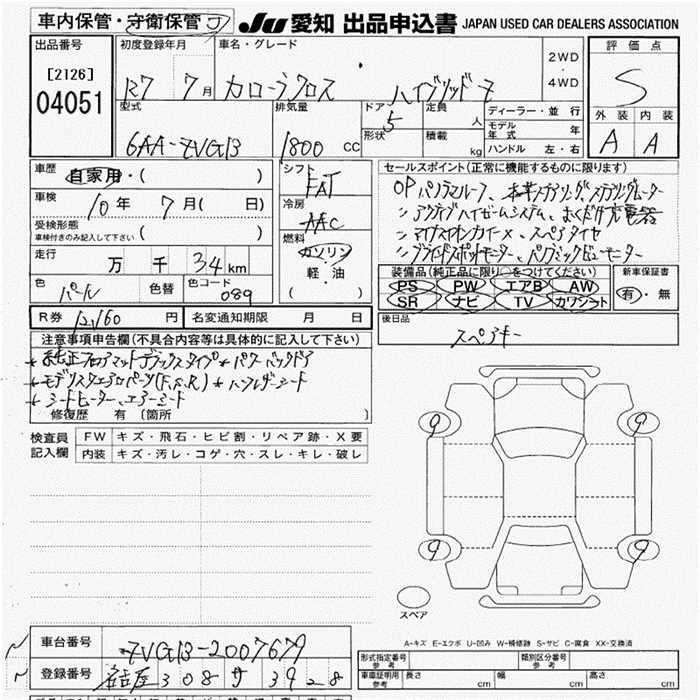 車内保管・守衛保管 J JU 愛知 出品申込書 JAPAN USED CAR DEALERS ASSOCIATION
出品番号 [2126] 04051
初度登録年月 R7 年 7 月
車名・グレード カローラクロス ハイブリッド Z
2WD ・ 4WD
評価点 S
外装 A 内装 A
型式 6AA-ZVG13
排気量 1800 cc
ドア 5 形状
定員 人 積載 kg
ディーラー・並行
モデル年式 年
ハンドル 左・右
車歴 自家用・( )
車検 10年 7月( 日)
受検形態 車検付きのみ記入して下さい ( )
走行 万 千 34 km
色 パール 色替 色コード 089
シフト FAT
冷房 AAC
燃料 ガソリン 軽・油 ( )
セールスポイント(正常に機能するものに限ります)
OP パノラマルーフ、本革ステアリング、ステアリングヒーター
〃 アクティブハイビームシステム、おくだけ充電器
〃 マイナスイオンカイーX、スペアタイヤ
〃 ブラインドスポットモニター、パノラミックビューモニター
装備品(純正品に限り○をつけてください)
PS PW エアB AW
SR ナビ TV カワシート
新車保証書 有・無
R券 12160 円 名変通知期限 月 日
後日品 スペアキー
注意事項申告欄(不具合内容等は具体的に記入して下さい)
* 純正フロアマットデラックスタイプ * パワーバックドア
* モデリスタエアロパーツ(F,S,R) * ハーフレザーシート
* シートヒーター、エアーシート
修復歴 有 〔箇所 〕
検査員記入欄 FW キズ・飛石・ヒビ割・リペア跡・X要
内装 キズ・汚レ・コゲ・穴・スレ・キレ・破レ
9 9
9 9
スペア
A-キズ E-エクボ U-凹み W-補修跡 S-サビ C-腐食 XX-交換済
車台番号 ZVG13-2007679
登録番号 名古屋 308 サ 3928
形式指定番号 参考 類別区分番号 参考
車庫証明用 参考 長さ cm 幅 cm 高さ cm